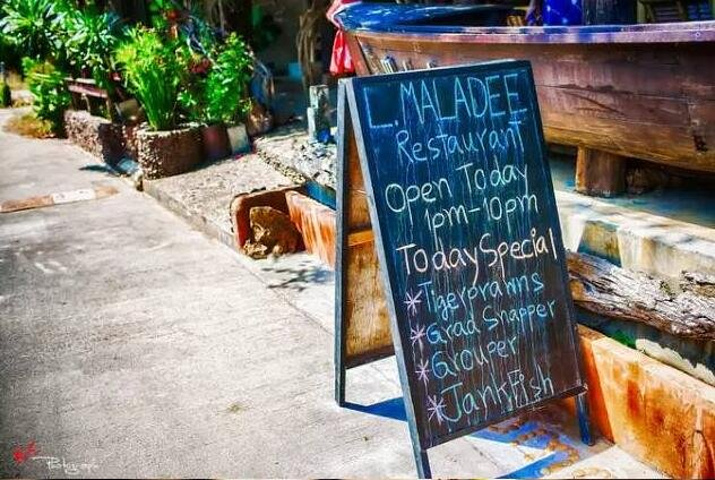 L.MALADEE
Restaurant
Open Today
1pm-10pm
Today Special
*Tigerprawns
*Grad Snapper
*Grouper
*Jank Fish
Photography